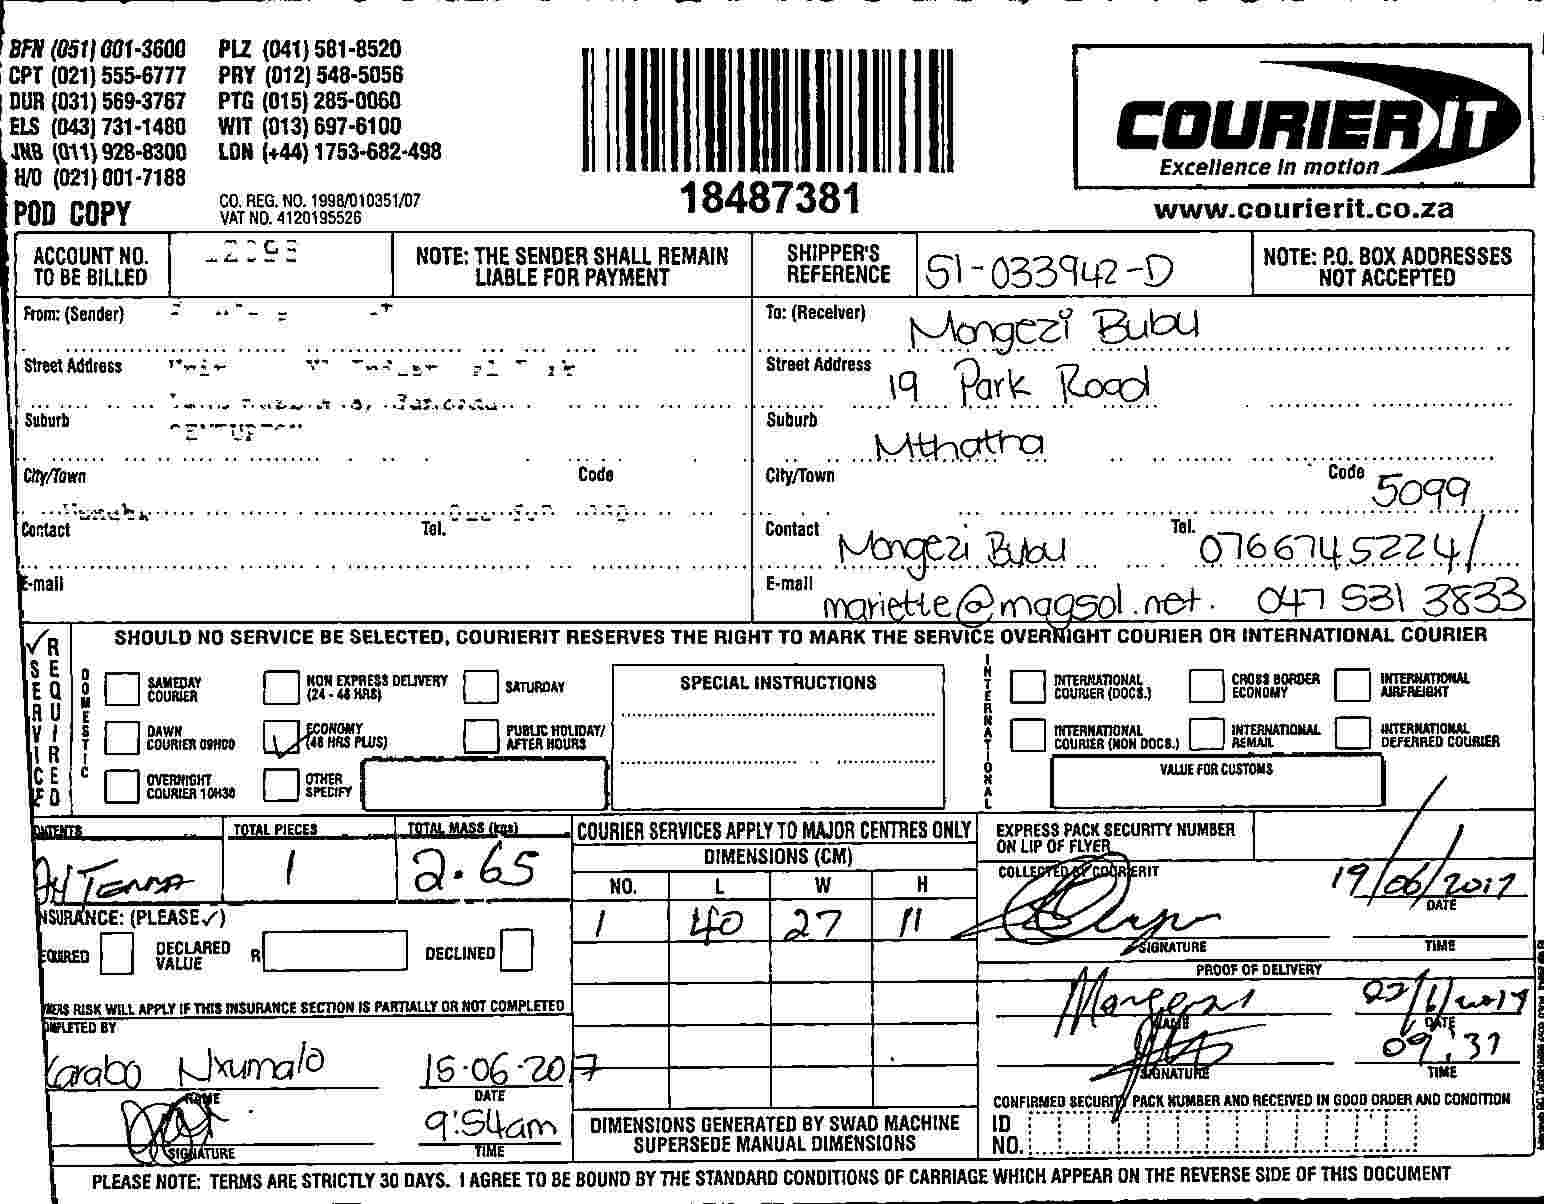 BFN (051) 001-3600 PLZ (041) 581-8520
CPT (021) 555-6777 PRY (012) 548-5056
DUR (031) 569-3767 PTG (015) 285-0060
ELS (043) 731-1480 WIT (013) 697-6100
JNB (011) 928-8300 LDN (+44) 1753-682-498
H/O (021) 001-7188
POD COPY
CO. REG. NO. 1998/010351/07
VAT NO. 4120195526
18487381
COURIER IT
Excellence in motion
www.courierit.co.za
ACCOUNT NO.
TO BE BILLED
NOTE: THE SENDER SHALL REMAIN
LIABLE FOR PAYMENT
SHIPPER'S
REFERENCE
S1-033942-D
NOTE: P.O. BOX ADDRESSES
NOT ACCEPTED
From: (Sender)
Street Address
Suburb
City/Town Code
Contact Tel.
E-mail
To: (Receiver) Mongezi Bubu
Street Address 19 Park Road
Suburb Mthatha
City/Town Code 5099
Contact Mongezi Bubu Tel. 0766745224/
E-mail mariette@magsol.net. 047 531 3833
SERVICE REQUIRED
SHOULD NO SERVICE BE SELECTED, COURIERIT RESERVES THE RIGHT TO MARK THE SERVICE OVERNIGHT COURIER OR INTERNATIONAL COURIER
DOMESTIC
SAMEDAY
COURIER
NON EXPRESS DELIVERY
(24 - 48 HRS)
SATURDAY
DAWN
COURIER 09H00
ECONOMY
(48 HRS PLUS)
PUBLIC HOLIDAY/
AFTER HOURS
OVERNIGHT
COURIER 10H30
OTHER
SPECIFY
SPECIAL INSTRUCTIONS
INTERNATIONAL
INTERNATIONAL
COURIER (DOCS.)
CROSS BORDER
ECONOMY
INTERNATIONAL
AIRFREIGHT
INTERNATIONAL
COURIER (NON DOCS.)
INTERNATIONAL
REMAIL
INTERNATIONAL
DEFERRED COURIER
VALUE FOR CUSTOMS
TOTAL PIECES
1
TOTAL MASS (kgs)
2.65
COURIER SERVICES APPLY TO MAJOR CENTRES ONLY
DIMENSIONS (CM)
NO. L W H
1 40 27 11
DIMENSIONS GENERATED BY SWAD MACHINE
SUPERSEDE MANUAL DIMENSIONS
NSURANCE: (PLEASE ✓)
EQUIRED
DECLARED
VALUE
R
DECLINED
NERS RISK WILL APPLY IF THIS INSURANCE SECTION IS PARTIALLY OR NOT COMPLETED
OMPLETED BY
Karabo Nxumalo 15-06-2017
NAME DATE
9:54am
SIGNATURE TIME
EXPRESS PACK SECURITY NUMBER
ON LIP OF FLYER
COLLECTED BY COURIERIT
19/06/2017
DATE
SIGNATURE TIME
PROOF OF DELIVERY
Mongezi
NAME DATE
09:37
SIGNATURE TIME
CONFIRMED SECURITY PACK NUMBER AND RECEIVED IN GOOD ORDER AND CONDITION
ID
NO.
PLEASE NOTE: TERMS ARE STRICTLY 30 DAYS. I AGREE TO BE BOUND BY THE STANDARD CONDITIONS OF CARRIAGE WHICH APPEAR ON THE REVERSE SIDE OF THIS DOCUMENT